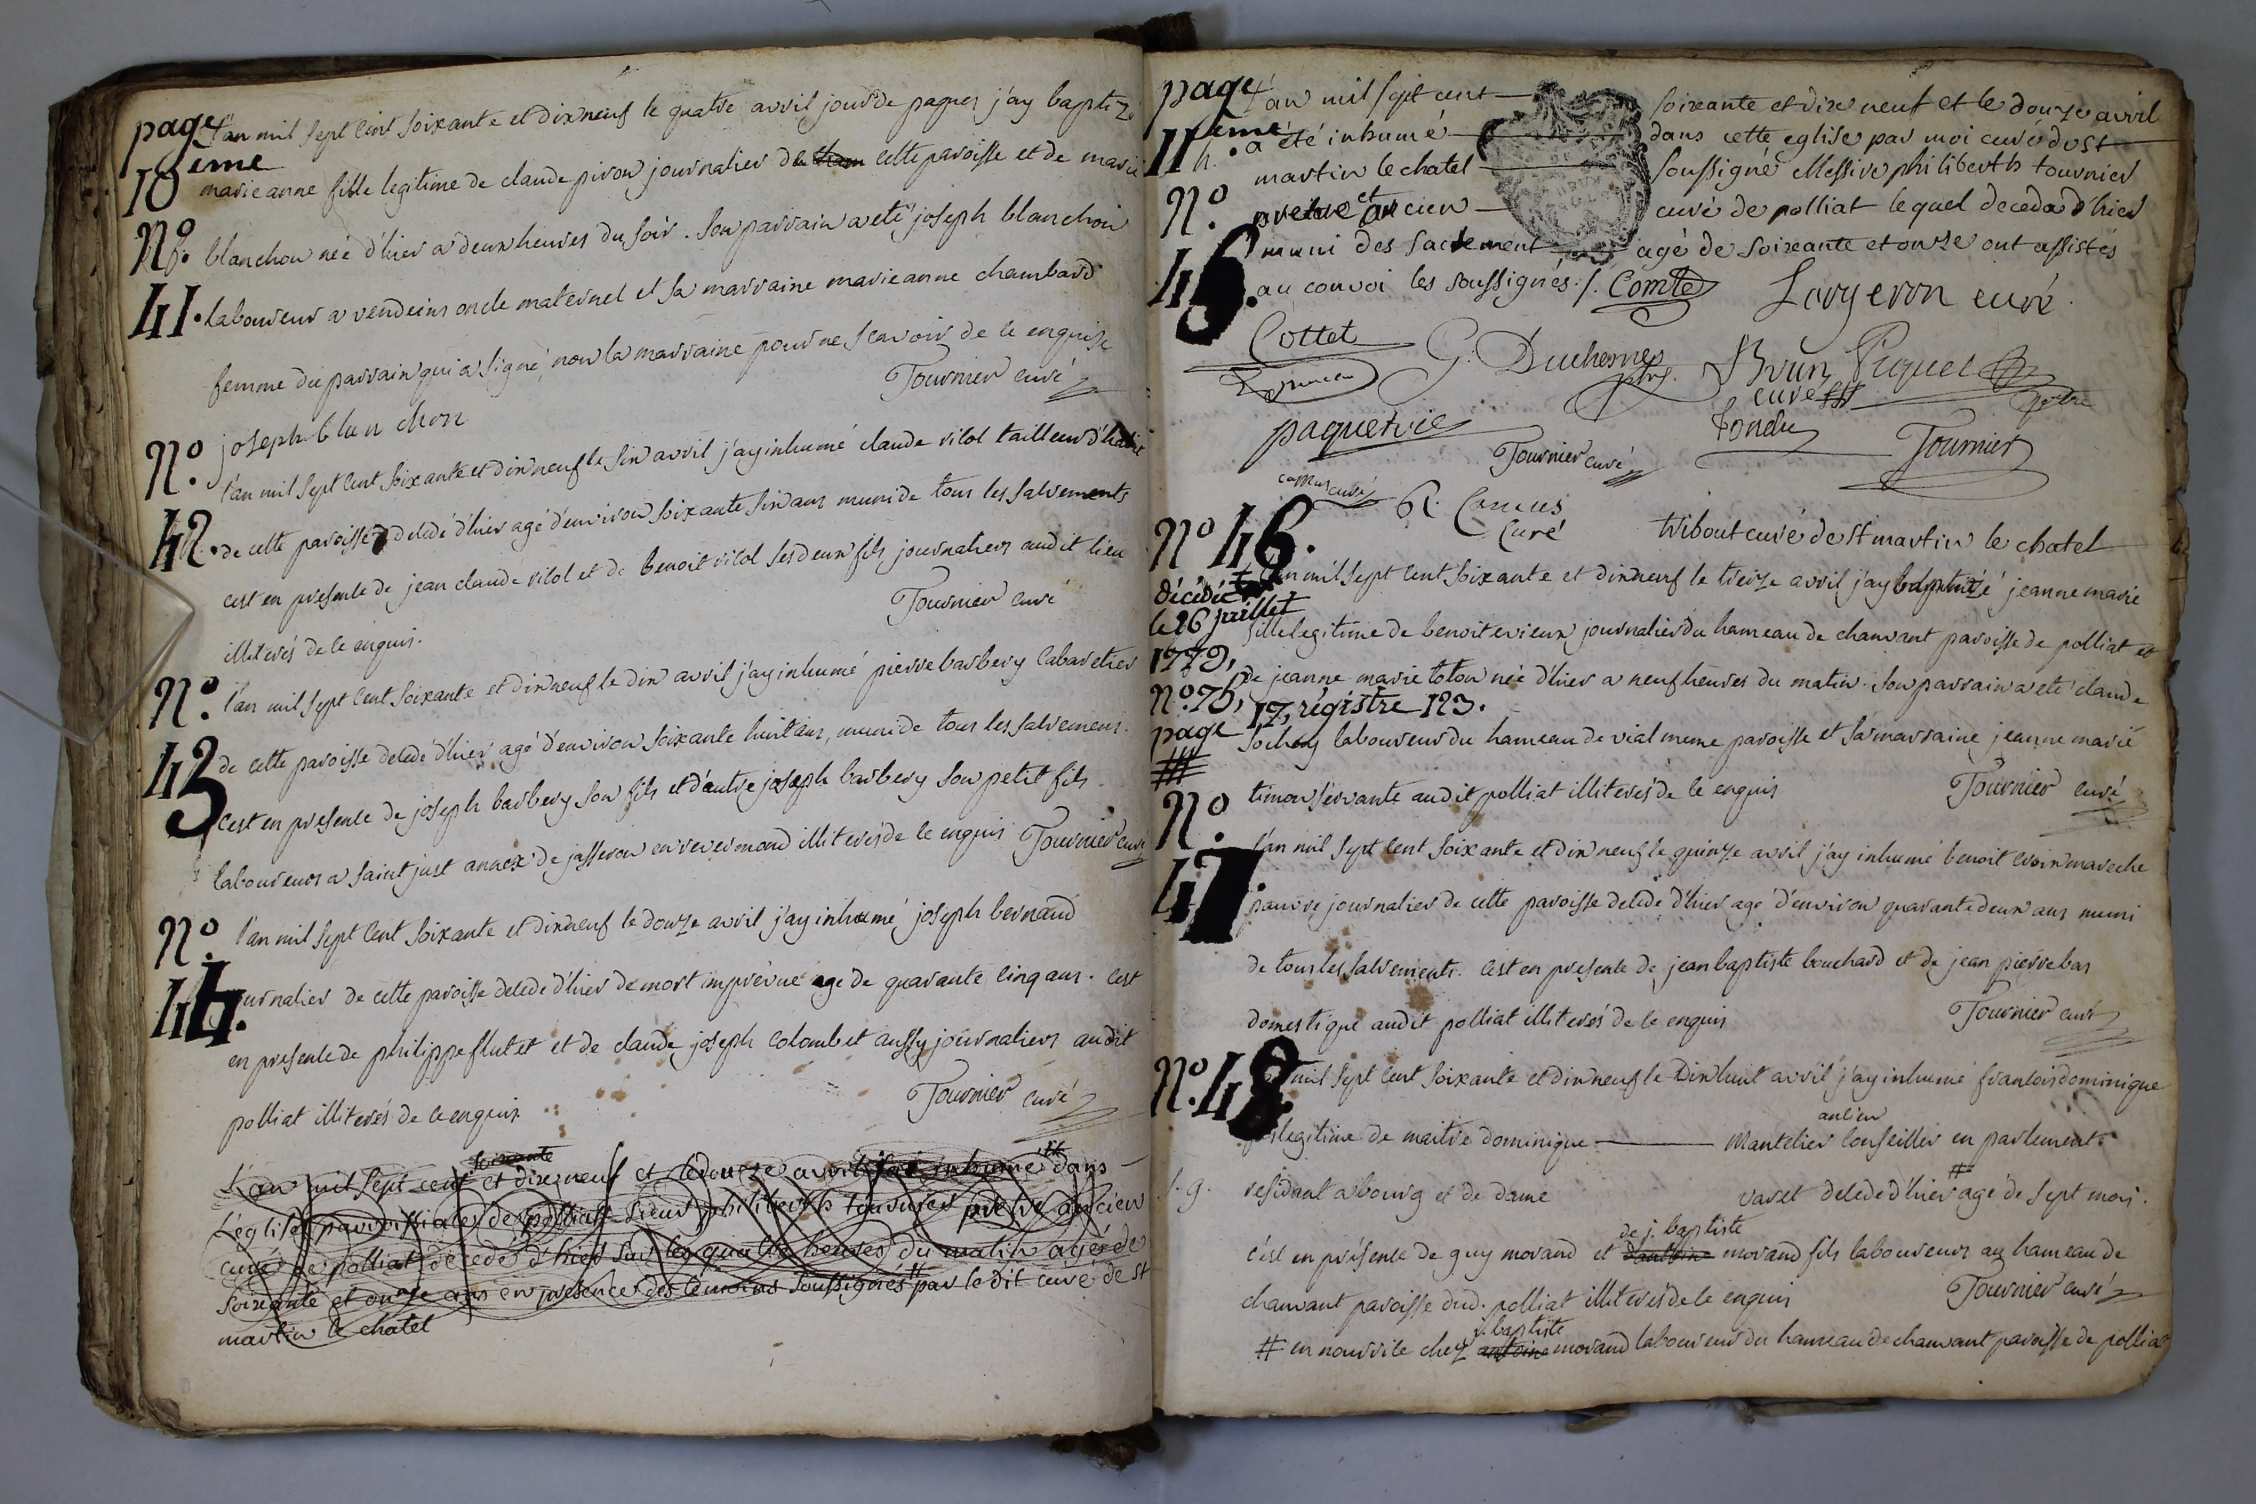 page
10 eme
l'an mil sept cent soixante et dix neuf le quatre avril jour de paques j'ay baptizé
marie anne fille legitime de claude piron journalier de cette paroisse et de marie
No. 41. blanchon née d'hier a deux heures du soir. son parrain a eté joseph blanchon
laboureur a vendeins oncle maternel et sa marraine marieanne chambard
femme du parrain qui a signé, non la marraine pour ne scavoir de ce enquise
joseph blan chon Tournier curé
No. 42. l'an mil sept cent soixante et dix neuf le six avril j'ay inhumé claude vilol tailleur d'habit
de cette paroisse decedé d'hier agé d'environ soixante six ans muni de tous les sacrements
c'est en presence de jean claude vilol et de benoit vilol ses deux fils journaliers audit lieu
illiterés de ce enquis. Tournier curé
No. 43 l'an mil sept cent soixante et dix neuf le dix avril j'ay inhumé pierre barbery cabaretier
de cette paroisse decedé d'hier agé d'environ soixante huit ans, muni de tous les sacremens.
c'est en presence de joseph barbery son fils et d'autre joseph barbery son petit fils
laboureurs a saint just annex de jasseron en revermond illiterés de ce enquis Tournier curé
No. 44. l'an mil sept cent soixante et dix neuf le douze avril j'ay inhumé joseph bernand
journalier de cette paroisse decedé d'hier de mort imprévue agé de quarante cinq ans. c'est
en presence de philippe flutet et de claude joseph colombet aussy journaliers audit
polliat illiterés de ce enquis Tournier curé
L'an mil sept cent soixante et dix neuf et le douze avril j'ai inhumé dans
L'église parroissiale de polliat sieur philiberth tournier pretre ancien
curé de polliat decedé d'hier sur les quatre heures du matin agé de
soixante et onze ans en presence des temoins soussignés par le dit curé de st
martin le chatel
page
11 eme
L'an mil sept cent soixante et dix neuf et le douze avril
h. a été inhumé dans cette eglise par moi curé de st
martin le chatel soussigné Messire philiberth tournier
No. 45. pretre et ancien curé de polliat lequel decedà d'hier
muni des sacrement agé de soixante et onze ont assistés
au convoi les soussignés./. Comte Loryeron curé.
Cottet G. Duchesnes ptre. Brun curé Piquet ptre
paquetvie Tournier curé Tondu Tournier
camus curé R. Camus curé Tribout curé de st martin le chatel
No 46.
l'an mil sept cent soixante et dix neuf le treize avril j'ay baptizé jeanne marie
décédée le 26 juillet 1779, No. 75, page 17, régistre 123.
fille legitime de benoit evieux journalier du hameau de chanvant paroisse de polliat et
de jeanne marie toton née d'hier a neuf heures du matin. son parrain a eté claude
sochay laboureur du hameau de vial meme paroisse et sa marraine jeanne marie
timon servante audit polliat illiterés de ce enquis Tournier curé
No. 47. l'an mil sept cent soixante et dix neuf le quinze avril j'ay inhumé benoit evoin mareche
pauvre journalier de cette paroisse decedé d'hier agé d'environ quarante deux ans muni
de tous les sacrements. c'est en presence de jean baptiste bouchard et de jean pierre bas
domestique audit polliat illiterés de ce enquis Tournier curé
No. 48. l'an mil sept cent soixante et dix neuf le dix huit avril j'ay inhumé francois dominique
fils legitime de maitre dominique mantelier ancien conseiller en parlement
s. g. residant a bourg et de dame varet decedé d'hier # agé de sept mois.
c'est en présence de guy morand et de j. baptiste morand fils laboureurs au hameau de
chanvant paroisse dud. polliat illiterés de ce enquis Tournier curé
# en nourrice chez j. baptiste morand laboureur du hameau de chanvant paroisse de polliat